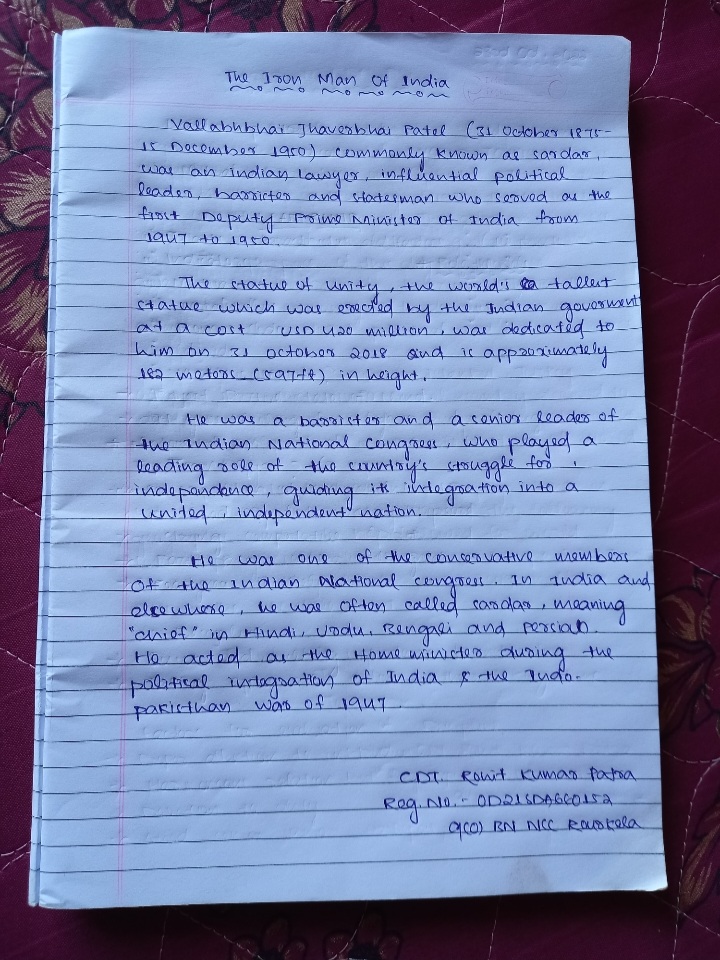 The Iron Man Of India
Vallabhbhai Jhaverbhai Patel (31 October 1875-
15 December 1950) commonly known as sardar,
was an indian lawyer, influential political
leader, barricter and statesman who served as the
first Deputy Prime Minister of India from
1947 to 1950.
The statue of unity, the world's tallest
statue which was erected by the Indian goverment
at a cost USD 420 million, was dedicated to
him on 31 october 2018 and is approximately
182 meters (597ft) in height.
He was a barrister and a senior leader of
the Indian National congress, who played a
leading role of the country's struggle for
independance, guiding its integration into a
united, independent nation.
He was one of the conservative members
of the Indian National congress. In India and
elsewhere, he was often called sardar, meaning
"chief" in Hindi, Urdu, Bengali and Persian.
He acted as the Home minister during the
political integration of India & the Indo-
pakisthan war of 1947.
CDT. Rohit Kumar Patra
Reg. No. - OD21SDA660152
9(O) BN NCC Rourkela